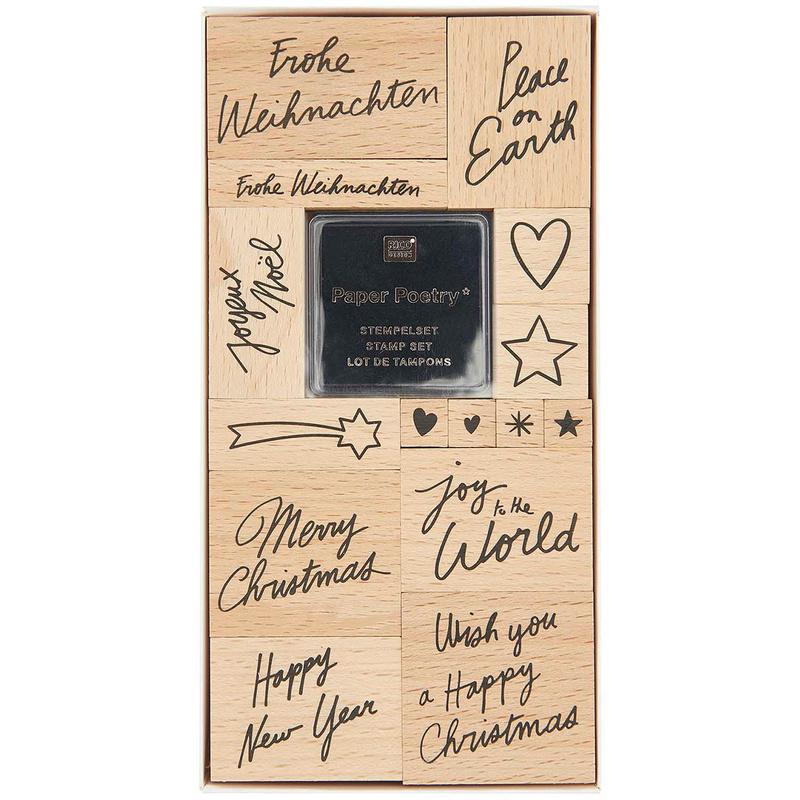 Frohe
Weihnachten
Peace
on
Earth
Frohe Weihnachten
Joyeux
Noël
RICO
DESIGN
Paper Poetry*
STEMPELSET
STAMP SET
LOT DE TAMPONS
Merry
Christmas
Joy
to the
World
Happy
New Year
Wish you
a Happy
Christmas